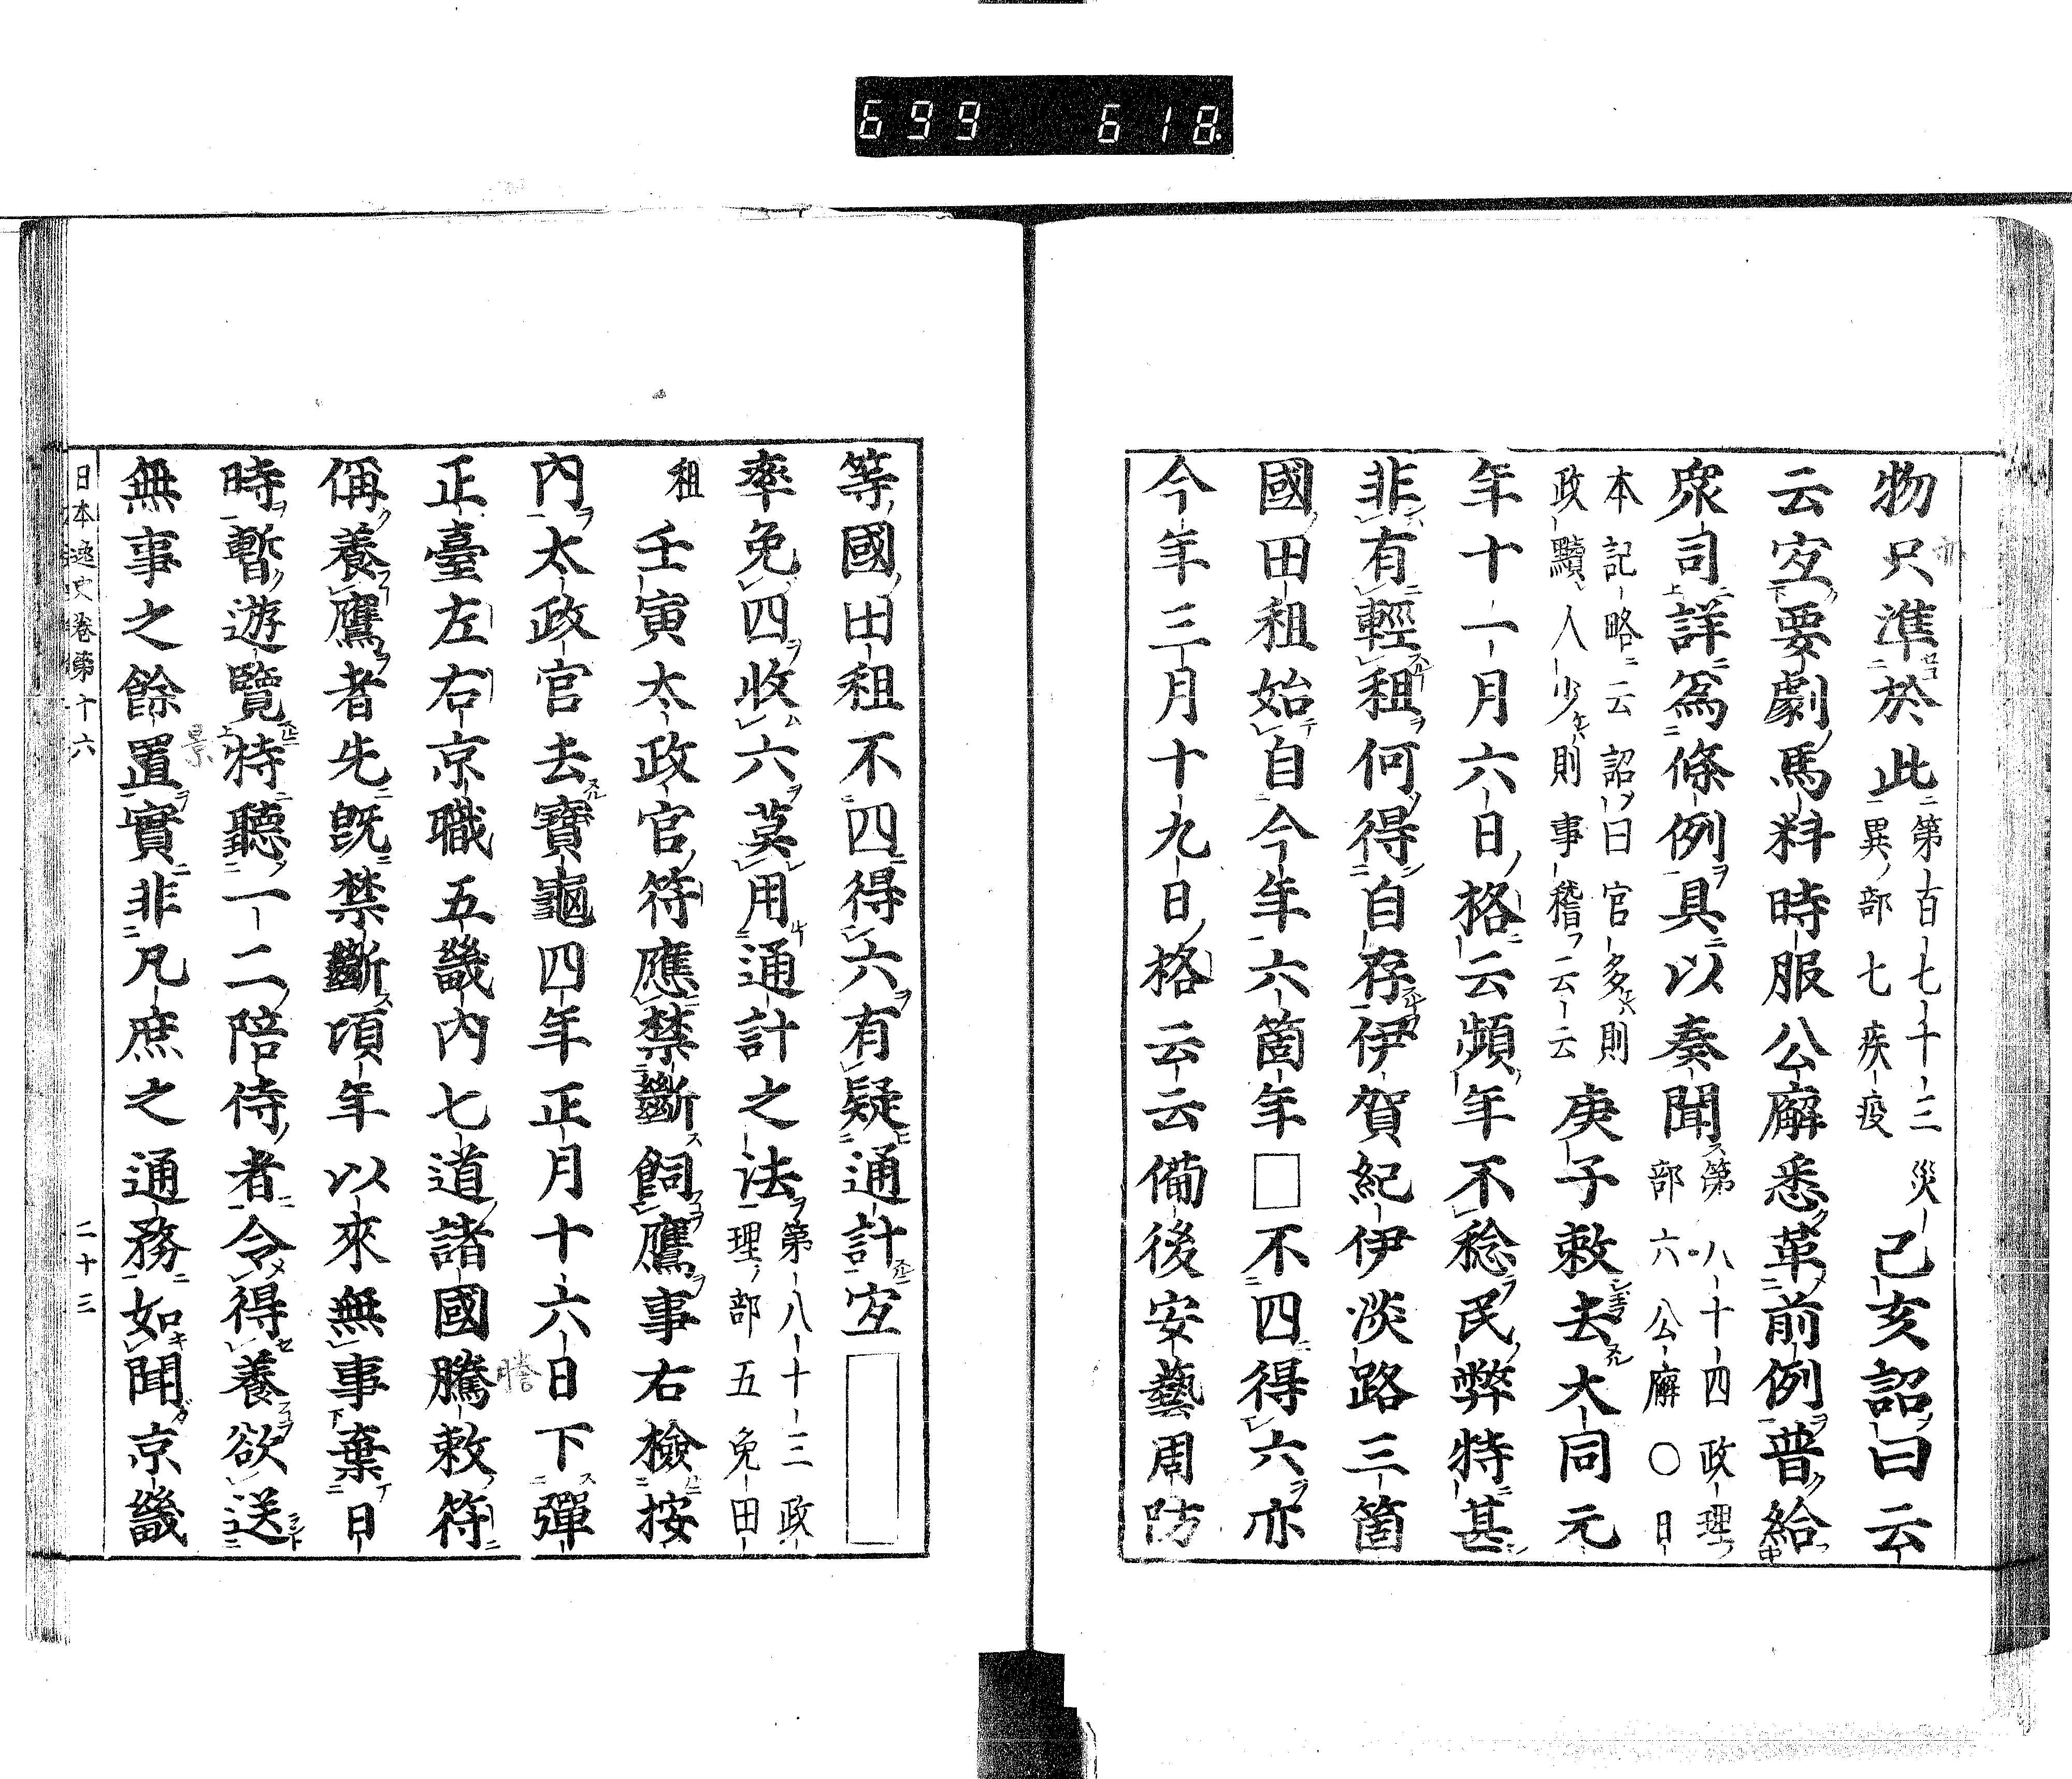 699 618
物尺準於此第百七十三災異部七疾疫己亥詔曰云
云宜要劇馬料時服公廨悉革前例普給
衆司詳爲條例具以奏聞第八十四政理部六公廨〇日
本記略云詔曰官多則政黷人少則事稽云云庚子敕去大同元
年十一月六日格云頻年不稔民弊特甚
非有輕租何得自存伊賀紀伊淡路三箇
國田租始自今年六箇年□不四得六亦
今年三月十九日格云云備後安藝周防
等國田租不四得六有疑通計宜
率免四收六莫用通計之法第八十三政理部五免田
租壬寅太政官符應禁斷飼鷹事右檢按
內太政官去寶龜四年正月十六日下彈
正臺左右京職五畿內七道諸國騰敕符
謄
偁養鷹者先既禁斷頃年以來無事棄日
時暫遊覽特聽一二陪侍者令得養欲送
景
無事之餘置實非凡庶之通務如聞京畿
日本逸史卷第十六 二十三